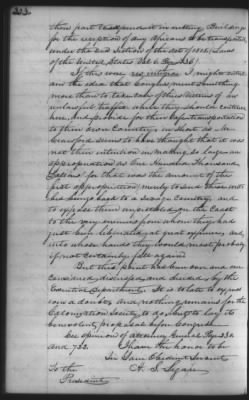 their part
for the reception of any Africans to be transported
under the 2nd Section of the act of 1818 (Laws
of the United States Vol 6 Page
If this were res integra I might
the idea that Congress
more than to take care of these victims of an
unlawful traffic while they should continue
here, and provide for their safe transportation
to their own Country; in short as Mr
Crawford seems to have thought that it was
not their intention in making so large an
appropriation as One Hundred Thousand
Dollars for that was the amount of the
first appropriation, merely to send these
beings back to a savage country, and
to expose them unprotected on the Coast
to the very enemies from whom they had
just been liberated at great expense, and
into whose hands they would most probably
if not certainly fall again.
But this point has been over and over
considered, discussed, and decided by the
Executive Department. It is too late to express
now a doubt, and nothing remains for the
Colonization Society to do but to lay its
benevolent proposal before Congress.
See opinions of Attorney General Page
and 752.
I have the honor to be
Sir Your Obedient Servant
To the
President
H. S. Legaré